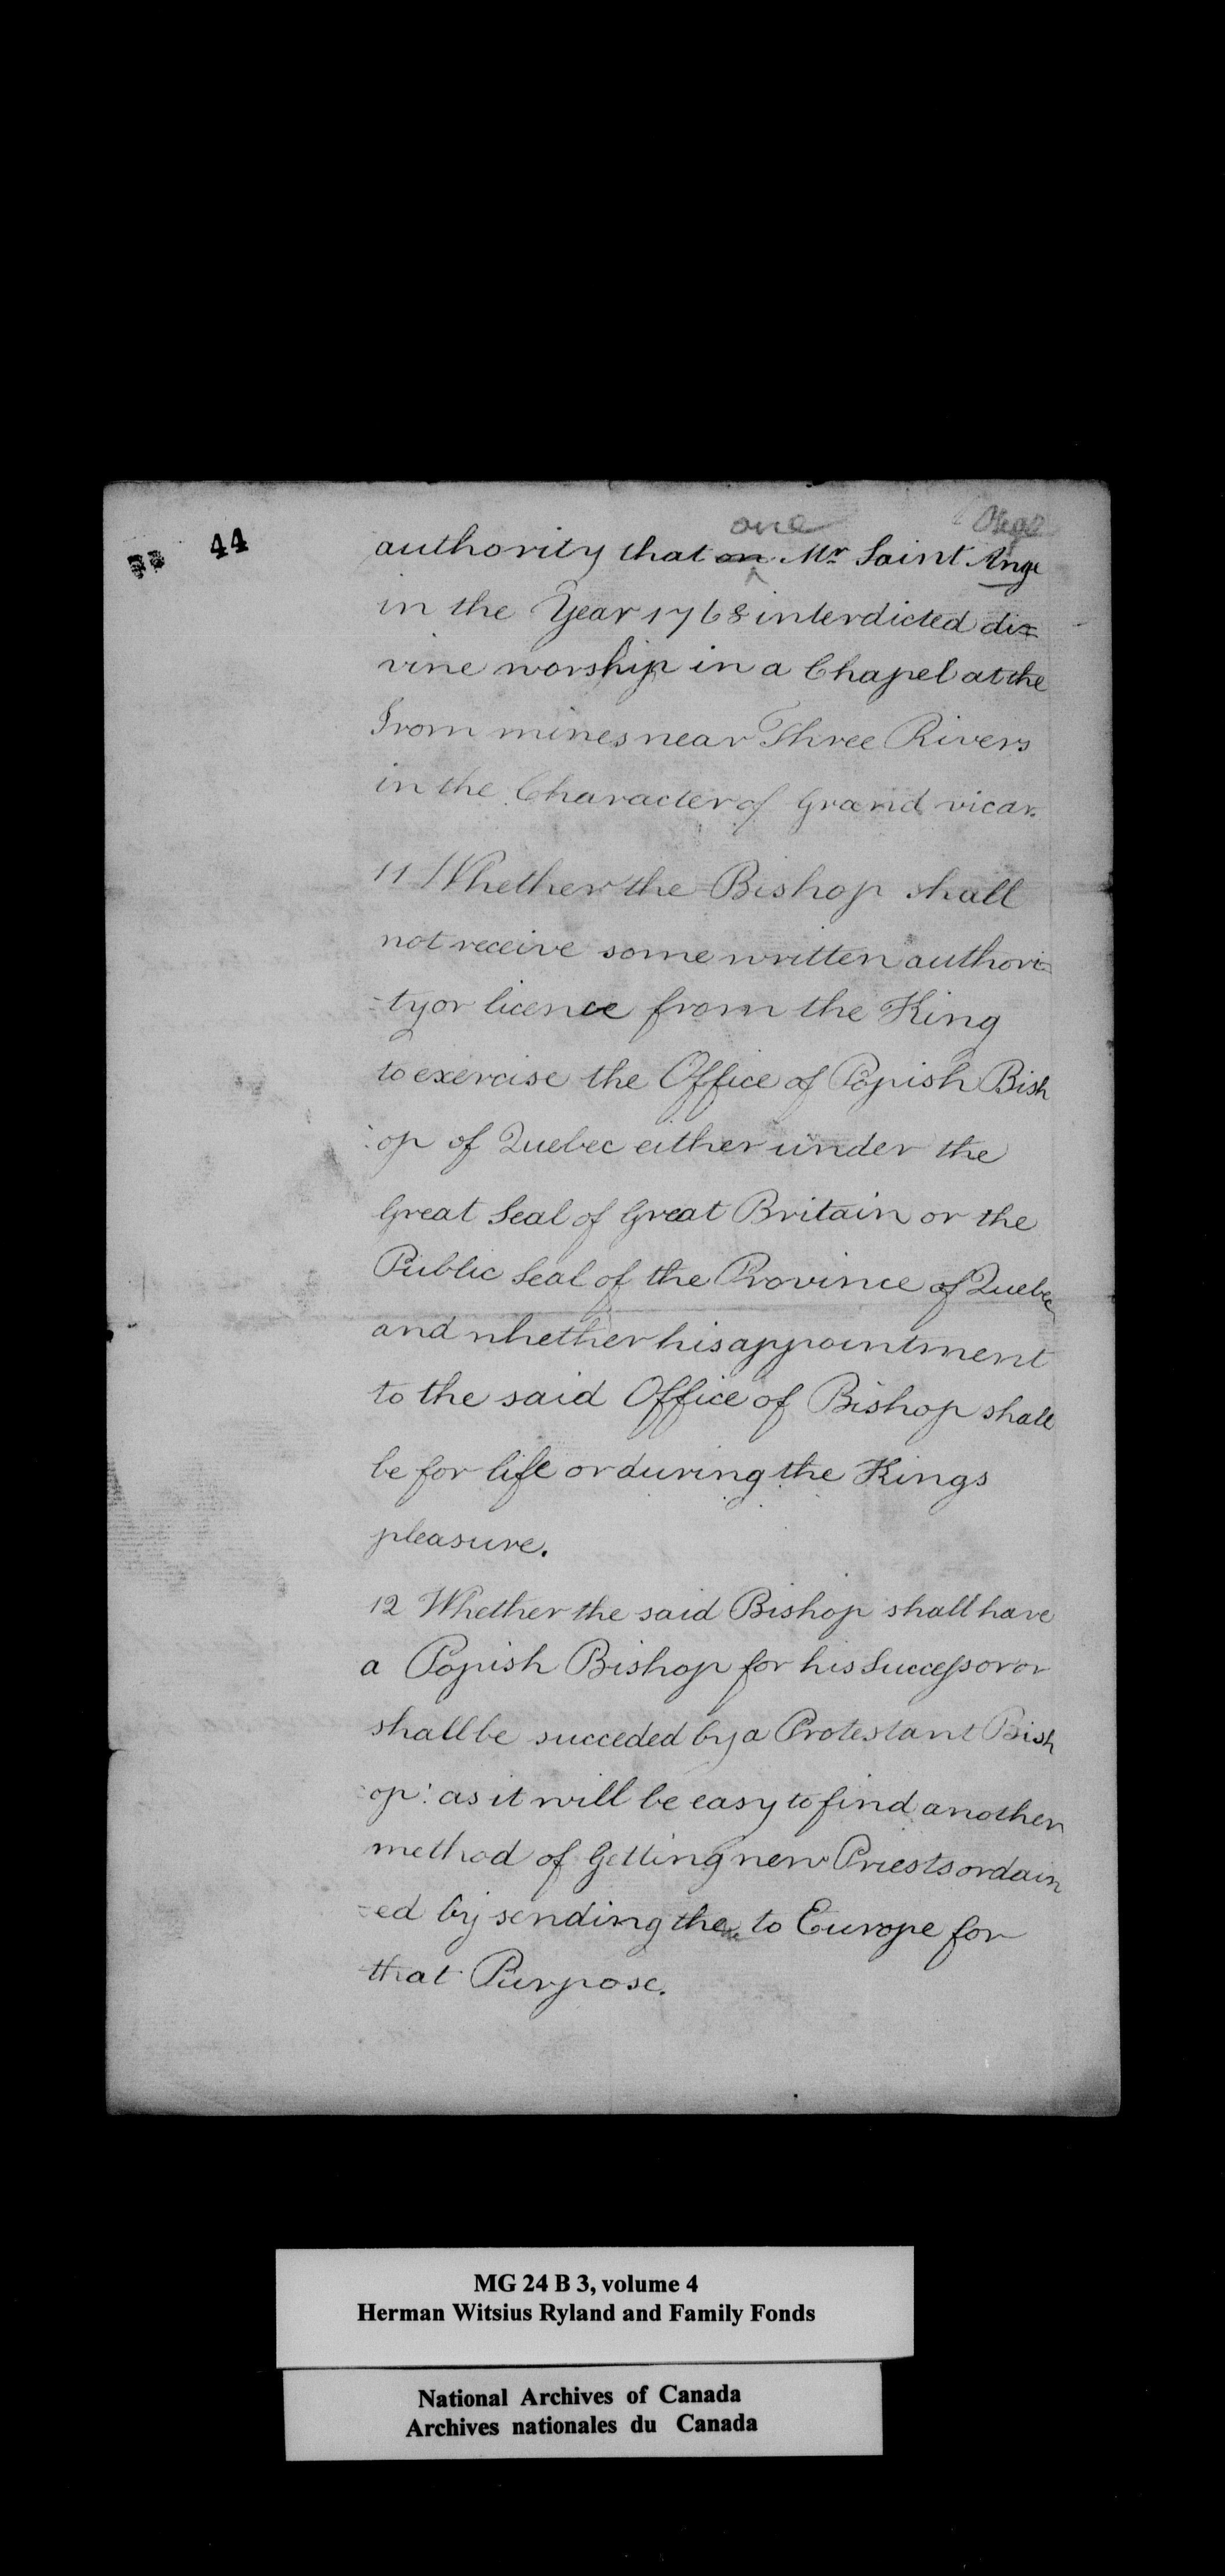 44
one
authority that on Mr Saint Ange
in the Year 1768 interdicted di=
vine worship in a Chapel at the
Irom mines near Three Rivers
in the Character of Grand vicar.
11 Whether the Bishop shall
not receive some written authori=
=ty or licence from the King
to exercise the Office of Popish Bish
:op of Quebec either under the
Great Seal of Great Britain or the
Public Seal of the Province of Quebec
and whether his appointment
to the said Office of Bishop shall
be for life or during the Kings
pleasure.
12 Whether the said Bishop shall have
a Popish Bishop for his Successor or
shall be succeded by a Protestant Bish
:op: as it will be easy to find another
method of Getting new Priests ordain
=ed by sending them to Europe for
that Purpose.
MG 24 B 3, volume 4
Herman Witsius Ryland and Family Fonds
National Archives of Canada
Archives nationales du Canada